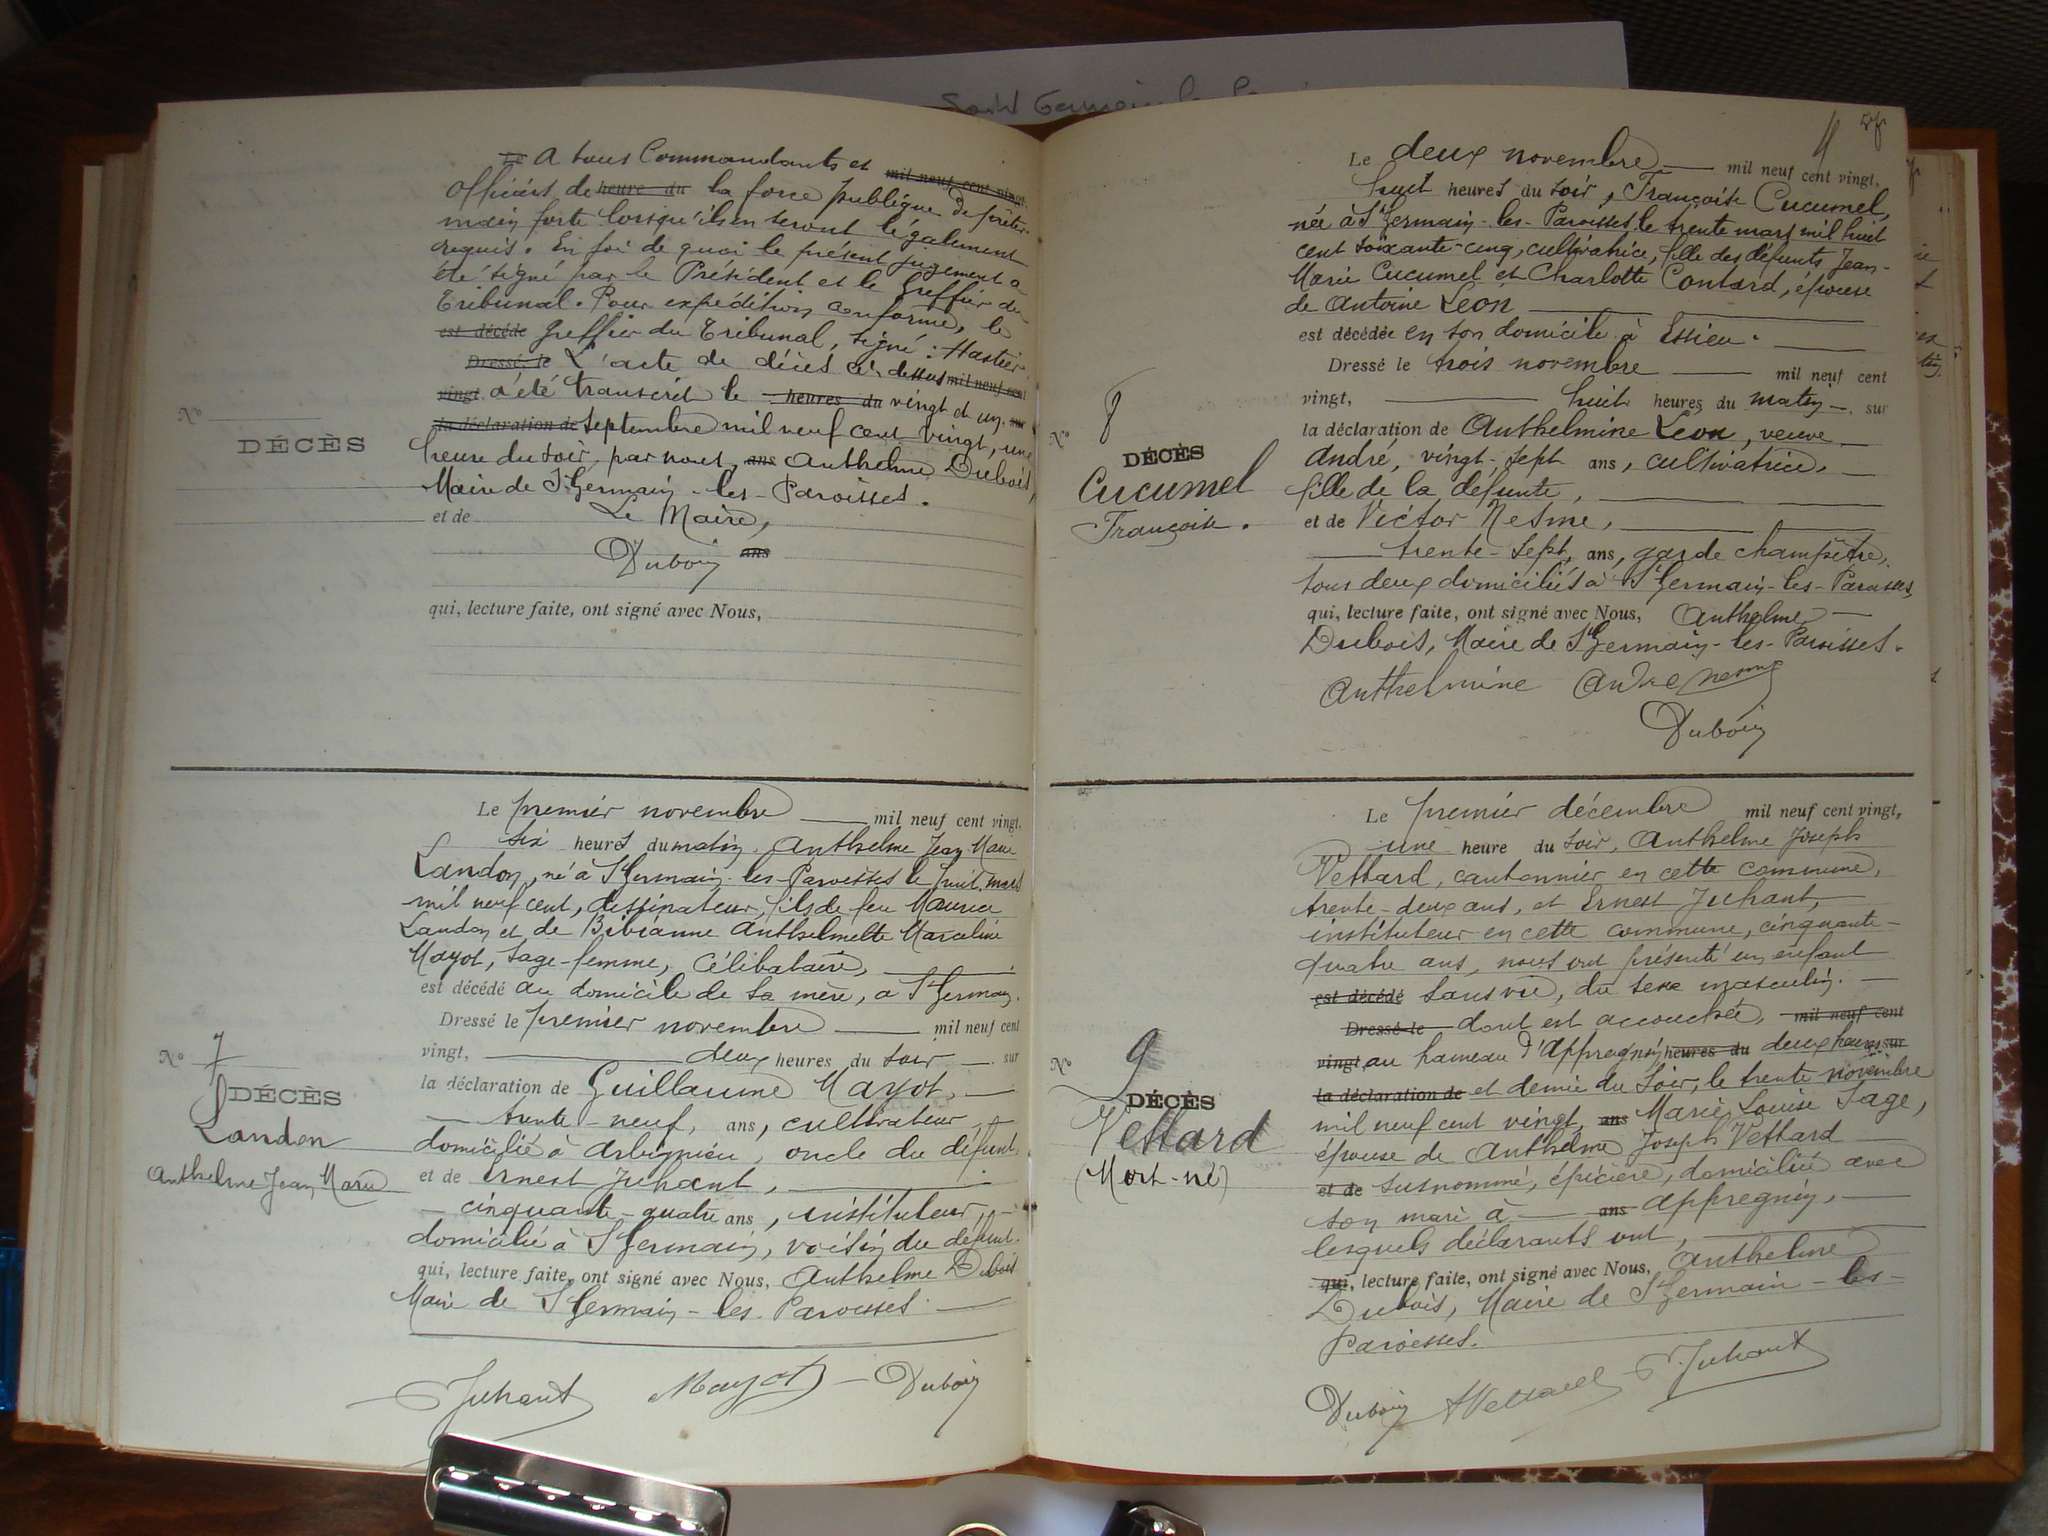 A tous Commandants et mil neuf cent vingt.
officiers de heure du la force publique de prêter
main forte lorsqu'ils en seront légalement
requis. En foi de quoi le présent jugement a
été signé par le Président et le Greffier du
Tribunal. Pour expédition conforme, le
est décédé Greffier du Tribunal, signé : Hastier
Dressé le L'acte de décès ci-dessus mil neuf cent
vingt a été transcrit le heures du vingt et un sur
la déclaration de Septembre mil neuf cent vingt, une
heure du soir, par nous, ans Anthelme Dubois,
Maire de St Germain-les-Paroisses.
et de Le Maire,
Dubois ans
qui, lecture faite, ont signé avec Nous,
N°
DÉCÈS
Le premier novembre mil neuf cent vingt,
six heures du matin, Anthelme Jean Marie
Landon, né à St Germain-les-Paroisses le huit mars
mil neuf cent, dessinateur, fils de feu Maurice
Landon et de Bibianne Anthelmette Marceline
Mayot, sage-femme, célibataire,
est décédé au domicile de sa mère, à St Germain.
Dressé le premier novembre mil neuf cent
vingt, deux heures du soir sur
la déclaration de Guillaume Mayot,
trente-neuf, ans, cultivateur,
domicilié à Arbignieu, oncle du défunt,
et de Ernest Juhant,
cinquante-quatre ans, instituteur,
domicilié à St Germain, voisin du défunt.
qui, lecture faite, ont signé avec Nous, Anthelme Dubois
Maire de St Germain-les-Paroisses.
Juhant Mayot Dubois
N° 7
DÉCÈS
Landon
Anthelme Jean Marie
Le deux novembre mil neuf cent vingt,
huit heures du soir, Françoise Cucumel,
née à St Germain-les-Paroisses le trente mars mil huit
cent soixante-cinq, cultivatrice, fille des défunts Jean-
Marie Cucumel et Charlotte Contard, épouse
de Antoine Léon
est décédée en son domicile à Essieu.
Dressé le trois novembre mil neuf cent
vingt, huit heures du matin, sur
la déclaration de Anthelmine Léon, veuve
André, vingt-sept ans, cultivatrice,
fille de la défunte,
et de Victor Nesme,
trente-sept, ans, garde champêtre,
tous deux domiciliés à St Germain-les-Paroisses,
qui, lecture faite, ont signé avec Nous, Anthelme
Dubois, Maire de St Germain-les-Paroisses.
Anthelmine André Nesme
Dubois
N° 8
DÉCÈS
Cucumel
Françoise.
Le premier décembre mil neuf cent vingt,
une heure du soir, Anthelme Joseph
Vettard, cantonnier en cette commune,
trente-deux ans, et Ernest Juhant,
instituteur en cette commune, cinquante-
quatre ans, nous ont présenté un enfant
est décédé sans vie, du sexe masculin.
Dressé le dont est accouchée, mil neuf cent
vingt au hameau d'Appregnin heures du deux heures sur
la déclaration de et demie du soir, le trente novembre
mil neuf cent vingt, ans Marie Louise Sage,
épouse de Anthelme Joseph Vettard
et de susnommé, épicière, domiciliée avec
son mari à ans Appregnin,
lesquels déclarants ont,
qui, lecture faite, ont signé avec Nous, Anthelme
Dubois, Maire de St Germain-les-
Paroisses.
Dubois AVettard Juhant
N° 9
DÉCÈS
Vettard
(Mort-né)